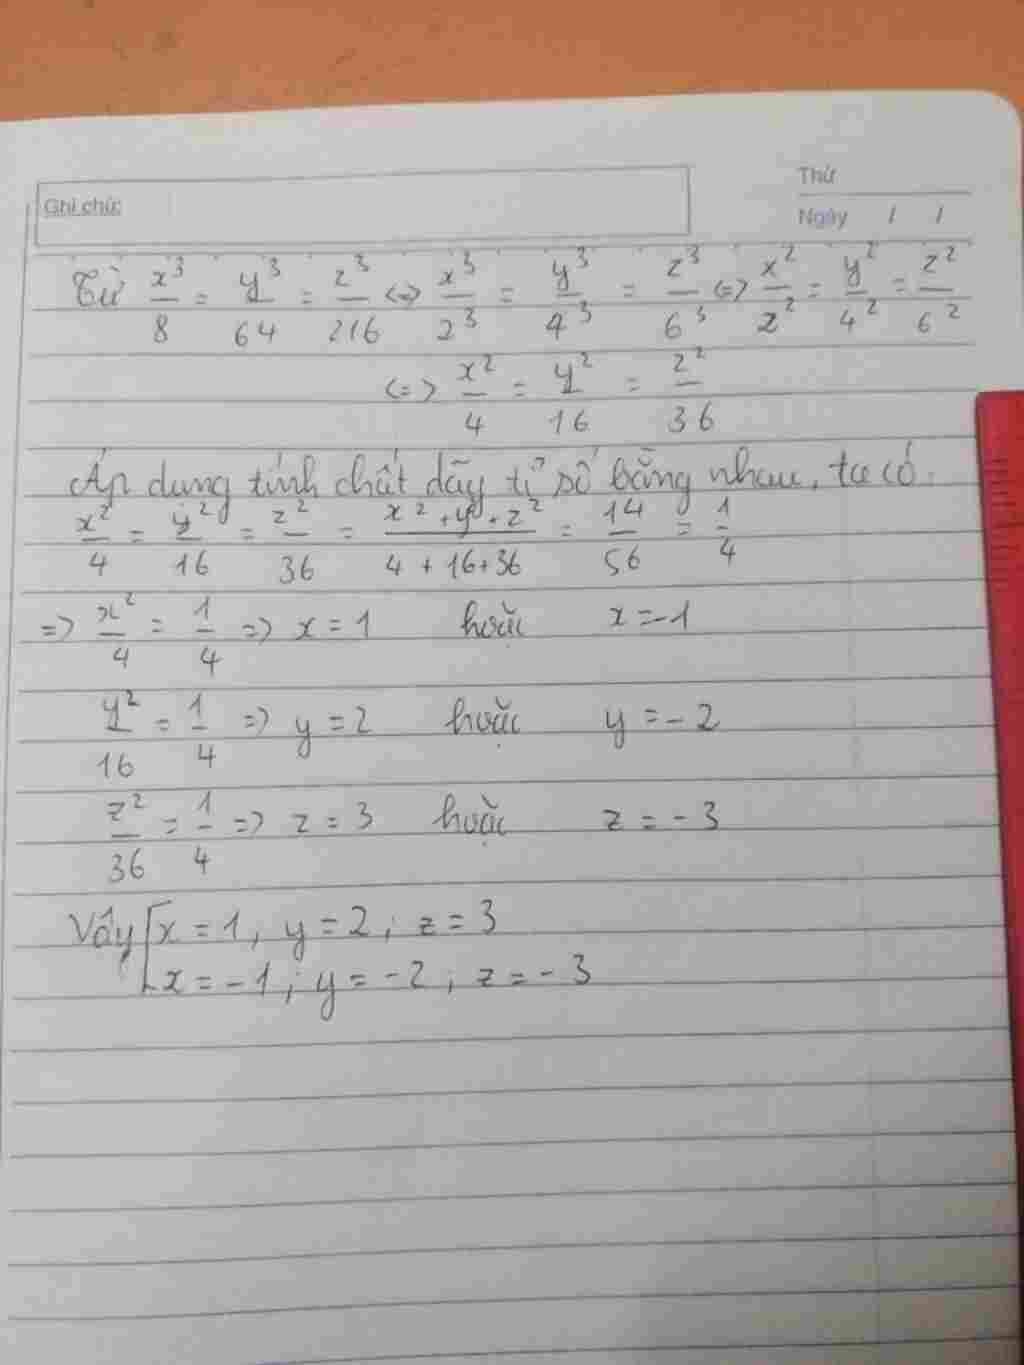 Thứ
Ghi chú:
Ngày / /
Từ x³/8 = y³/64 = z³/216 <=> x³/2³ = y³/4³ = z³/6³ <=> x²/2² = y²/4² = z²/6²
<=> x²/4 = y²/16 = z²/36
Áp dụng tính chất dãy tỉ số bằng nhau, ta có
x²/4 = y²/16 = z²/36 = x²+y²+z²/4+16+36 = 14/56 = 1/4
=> x²/4 = 1/4 => x = 1 hoặc x = -1
y²/16 = 1/4 => y = 2 hoặc y = -2
z²/36 = 1/4 => z = 3 hoặc z = -3
Vậy [x = 1, y = 2; z = 3
x = -1; y = -2; z = -3